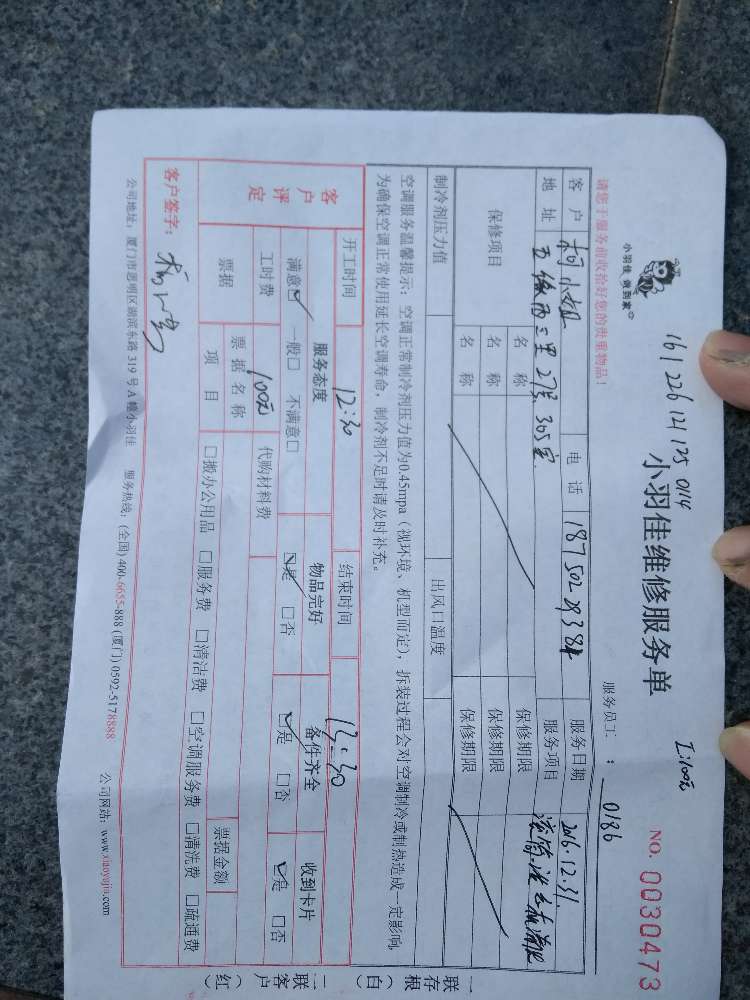 16122612125 0114
I:100元
小羽佳 做到家
小羽佳维修服务单
NO. 0030473
请您于服务前收拾好您的贵重物品！
服务员工： 0186
客户 柯小姐 电话 服务日期 2016.12.31
地址 五缘西三里27号305室 服务项目
保修项目 名称 保修期限
名称 保修期限
名称 保修期限
制冷剂压力值 出风口温度
空调服务温馨提示：空调正常制冷剂压力值为0.45mpa（视环境、机型而定），拆装过程会对空调制冷或制热造成一定影响，
为确保空调正常使用延长空调寿命，制冷剂不足时请及时补充。
开工时间 12:30 结束时间 13:30
客户评定 服务态度 物品完好 备件齐全 收到卡片
满意☑ 一般□ 不满意□ ☑是 □否 ☑是 □否 ☑是 □否
工时费 100元 代购材料费
票据 票据名称 票据金额
项目 □搬办公用品 □服务费 □清洁费 □空调服务费 □清洗费 □疏通费
客户签字：
公司地址：厦门市思明区湖滨东路319号A幢小羽佳 服务热线：(全国) 400-6655-888 (厦门) 0592-5178888 公司网站：www.xiaoyujia.com
一联存根（白）
二联客户（红）